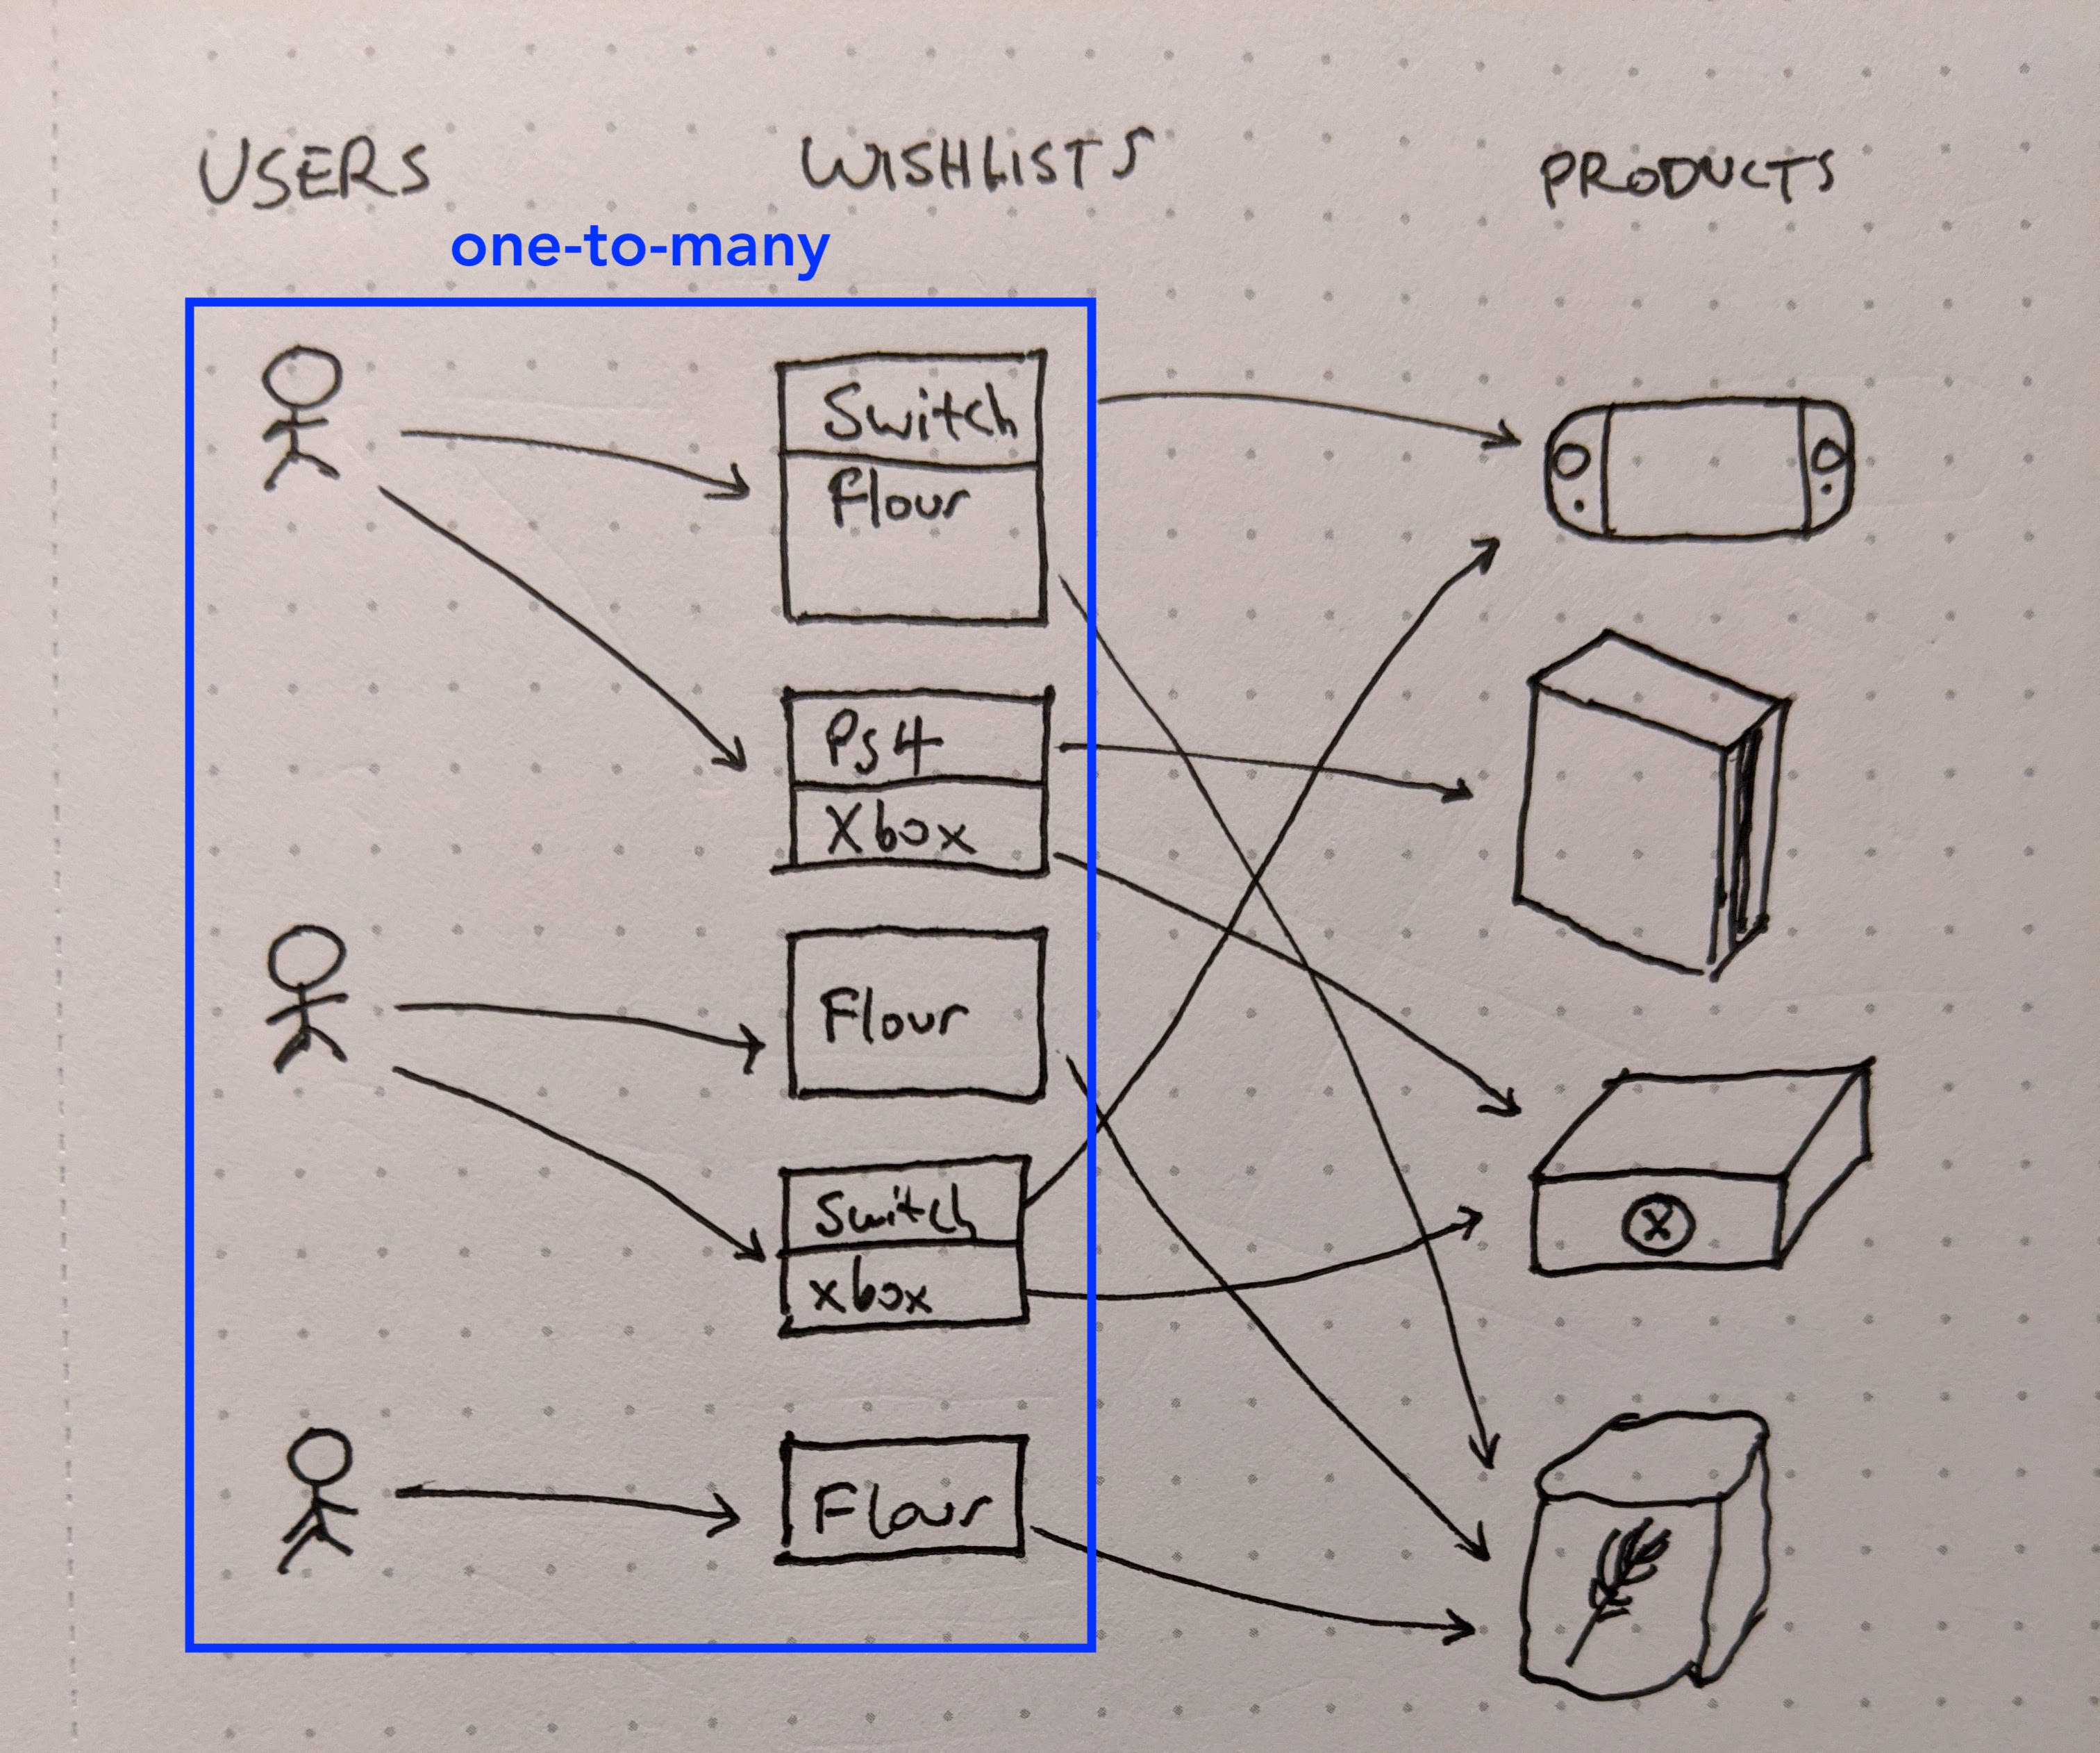 USERS
WISHLISTS
PRODUCTS
one-to-many
Switch
Flour
Ps4
Xbox
Flour
Switch
xbox
Flour
X